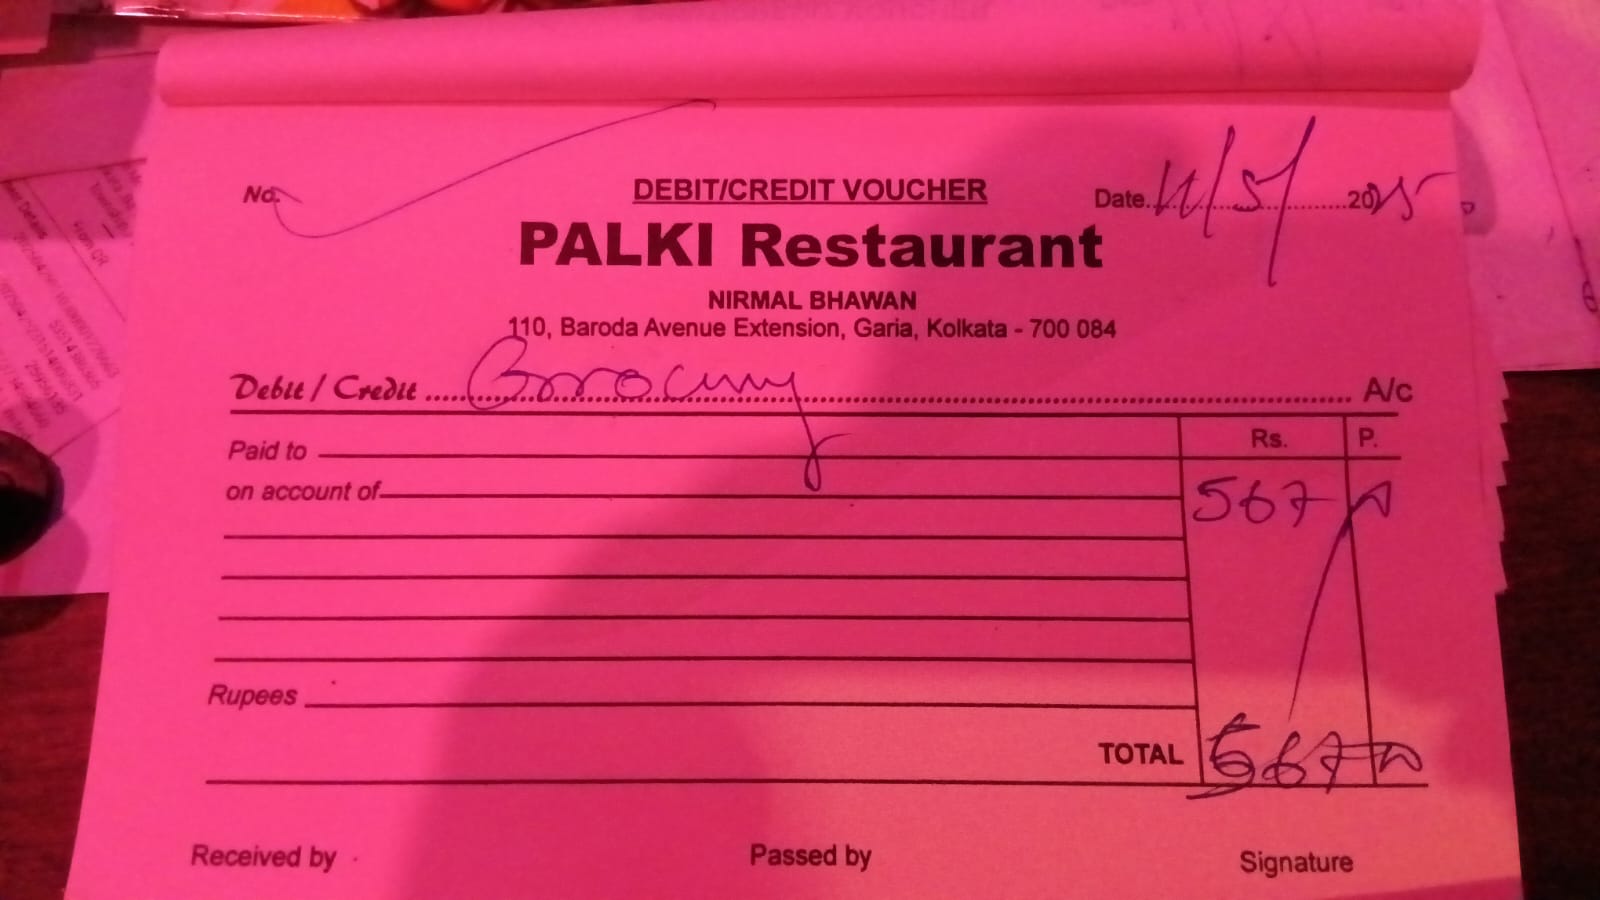 No.
DEBIT/CREDIT VOUCHER
Date 11/5/ 2025
PALKI Restaurant
NIRMAL BHAWAN
110, Baroda Avenue Extension, Garia, Kolkata - 700 084
Debit / Credit A/c
Rs. P.
Paid to
on account of 567
Rupees
TOTAL 567
Received by Passed by Signature